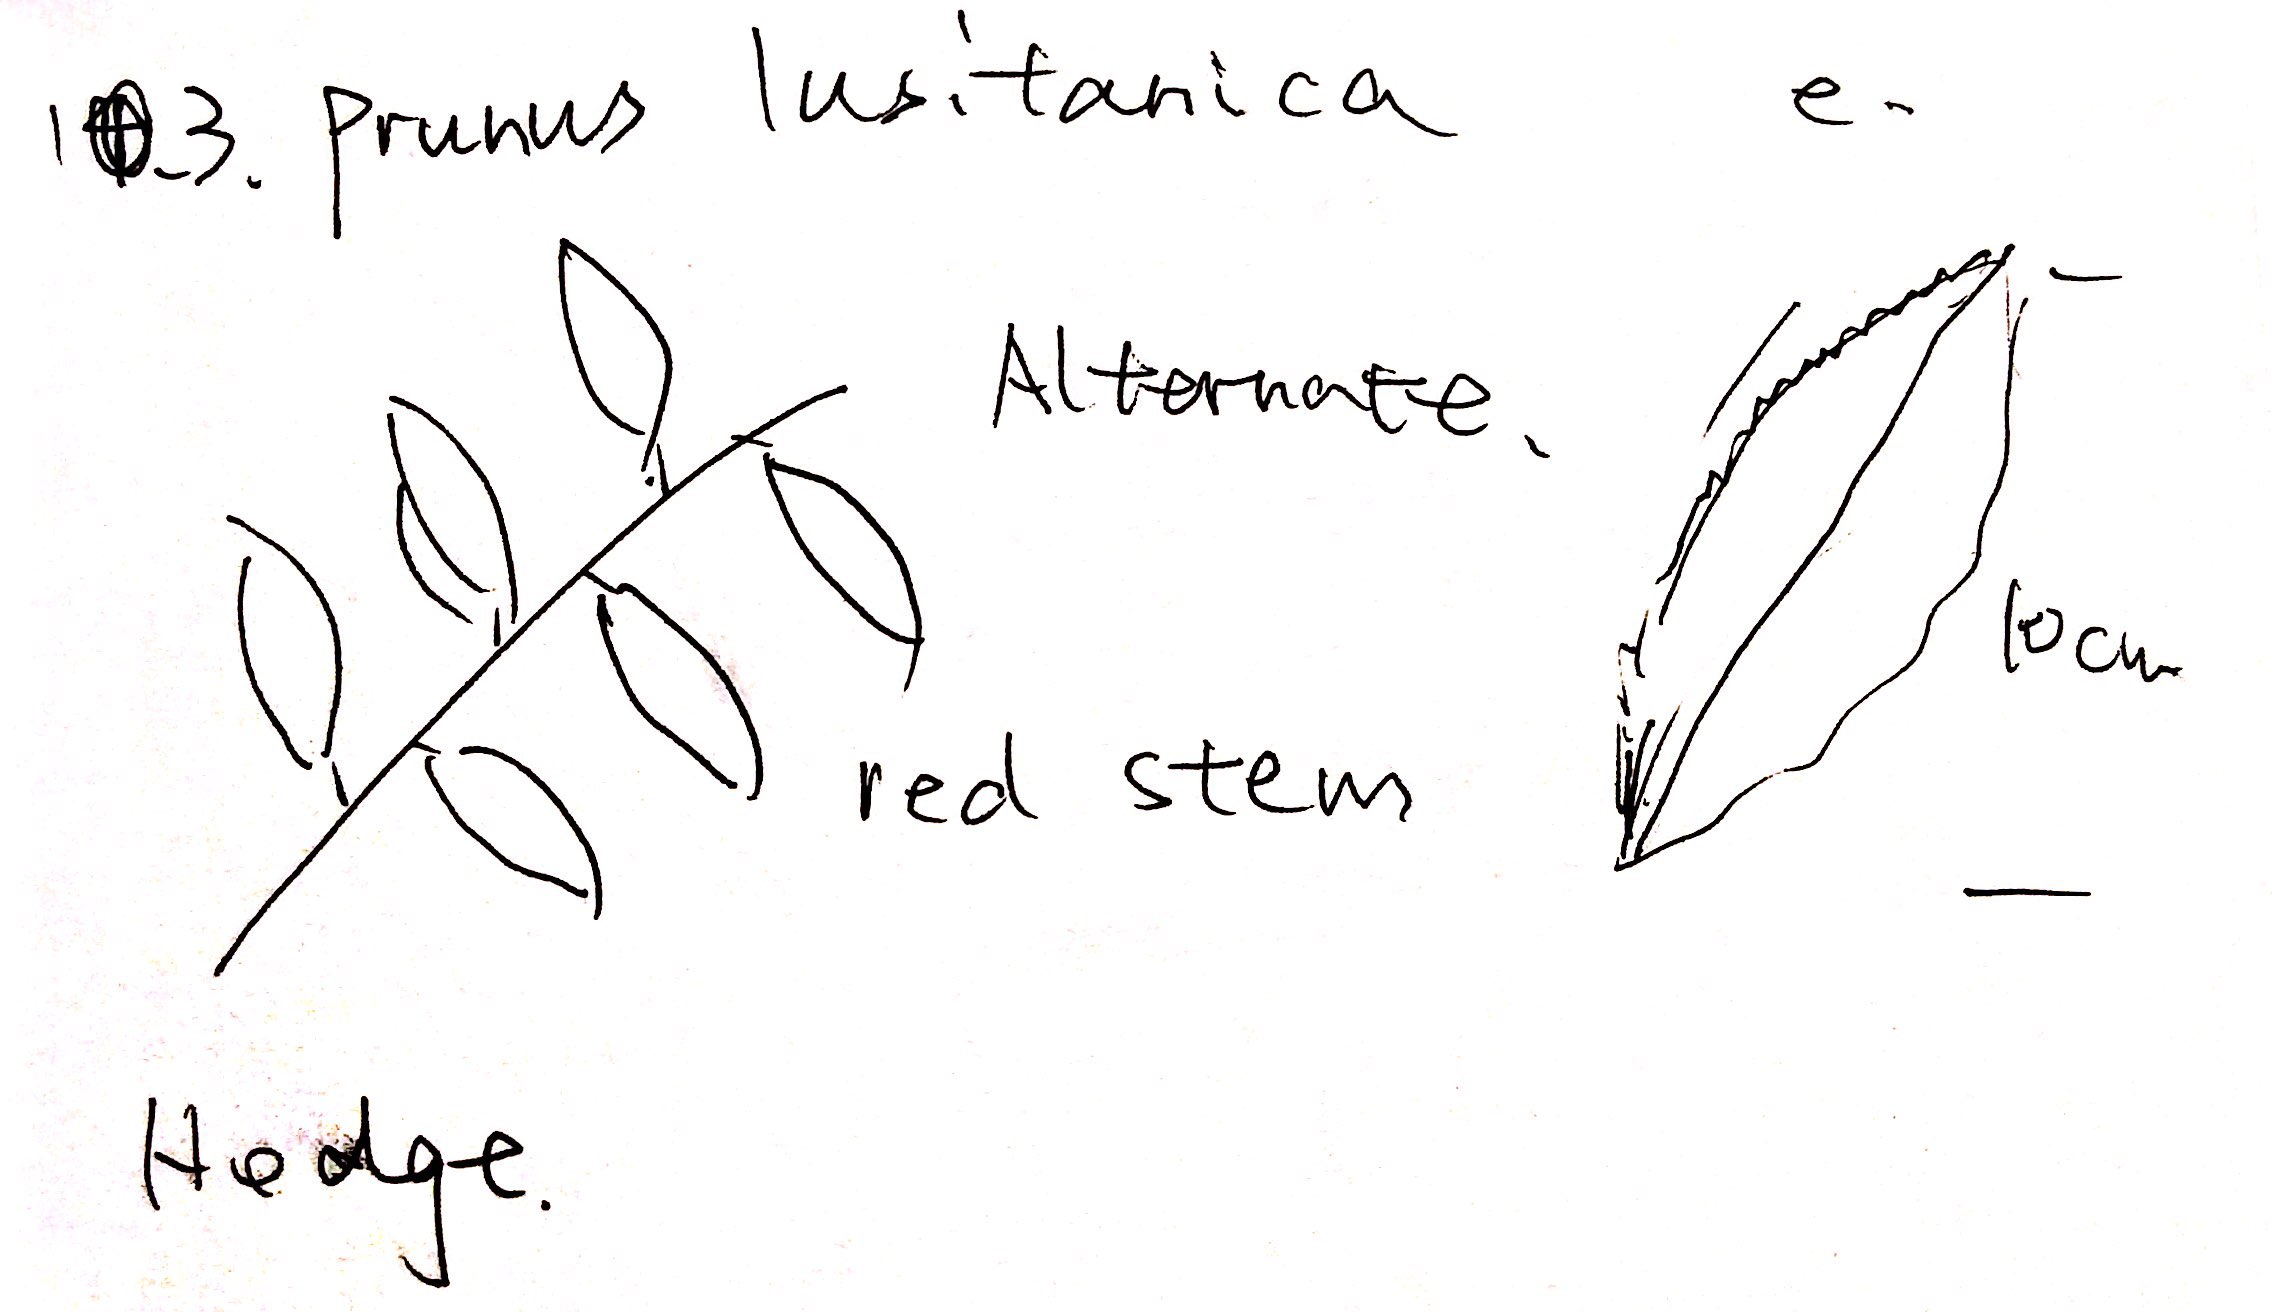 13. Prunus lusitanica e.
Alternate.
10cm
red stem
Hedge.